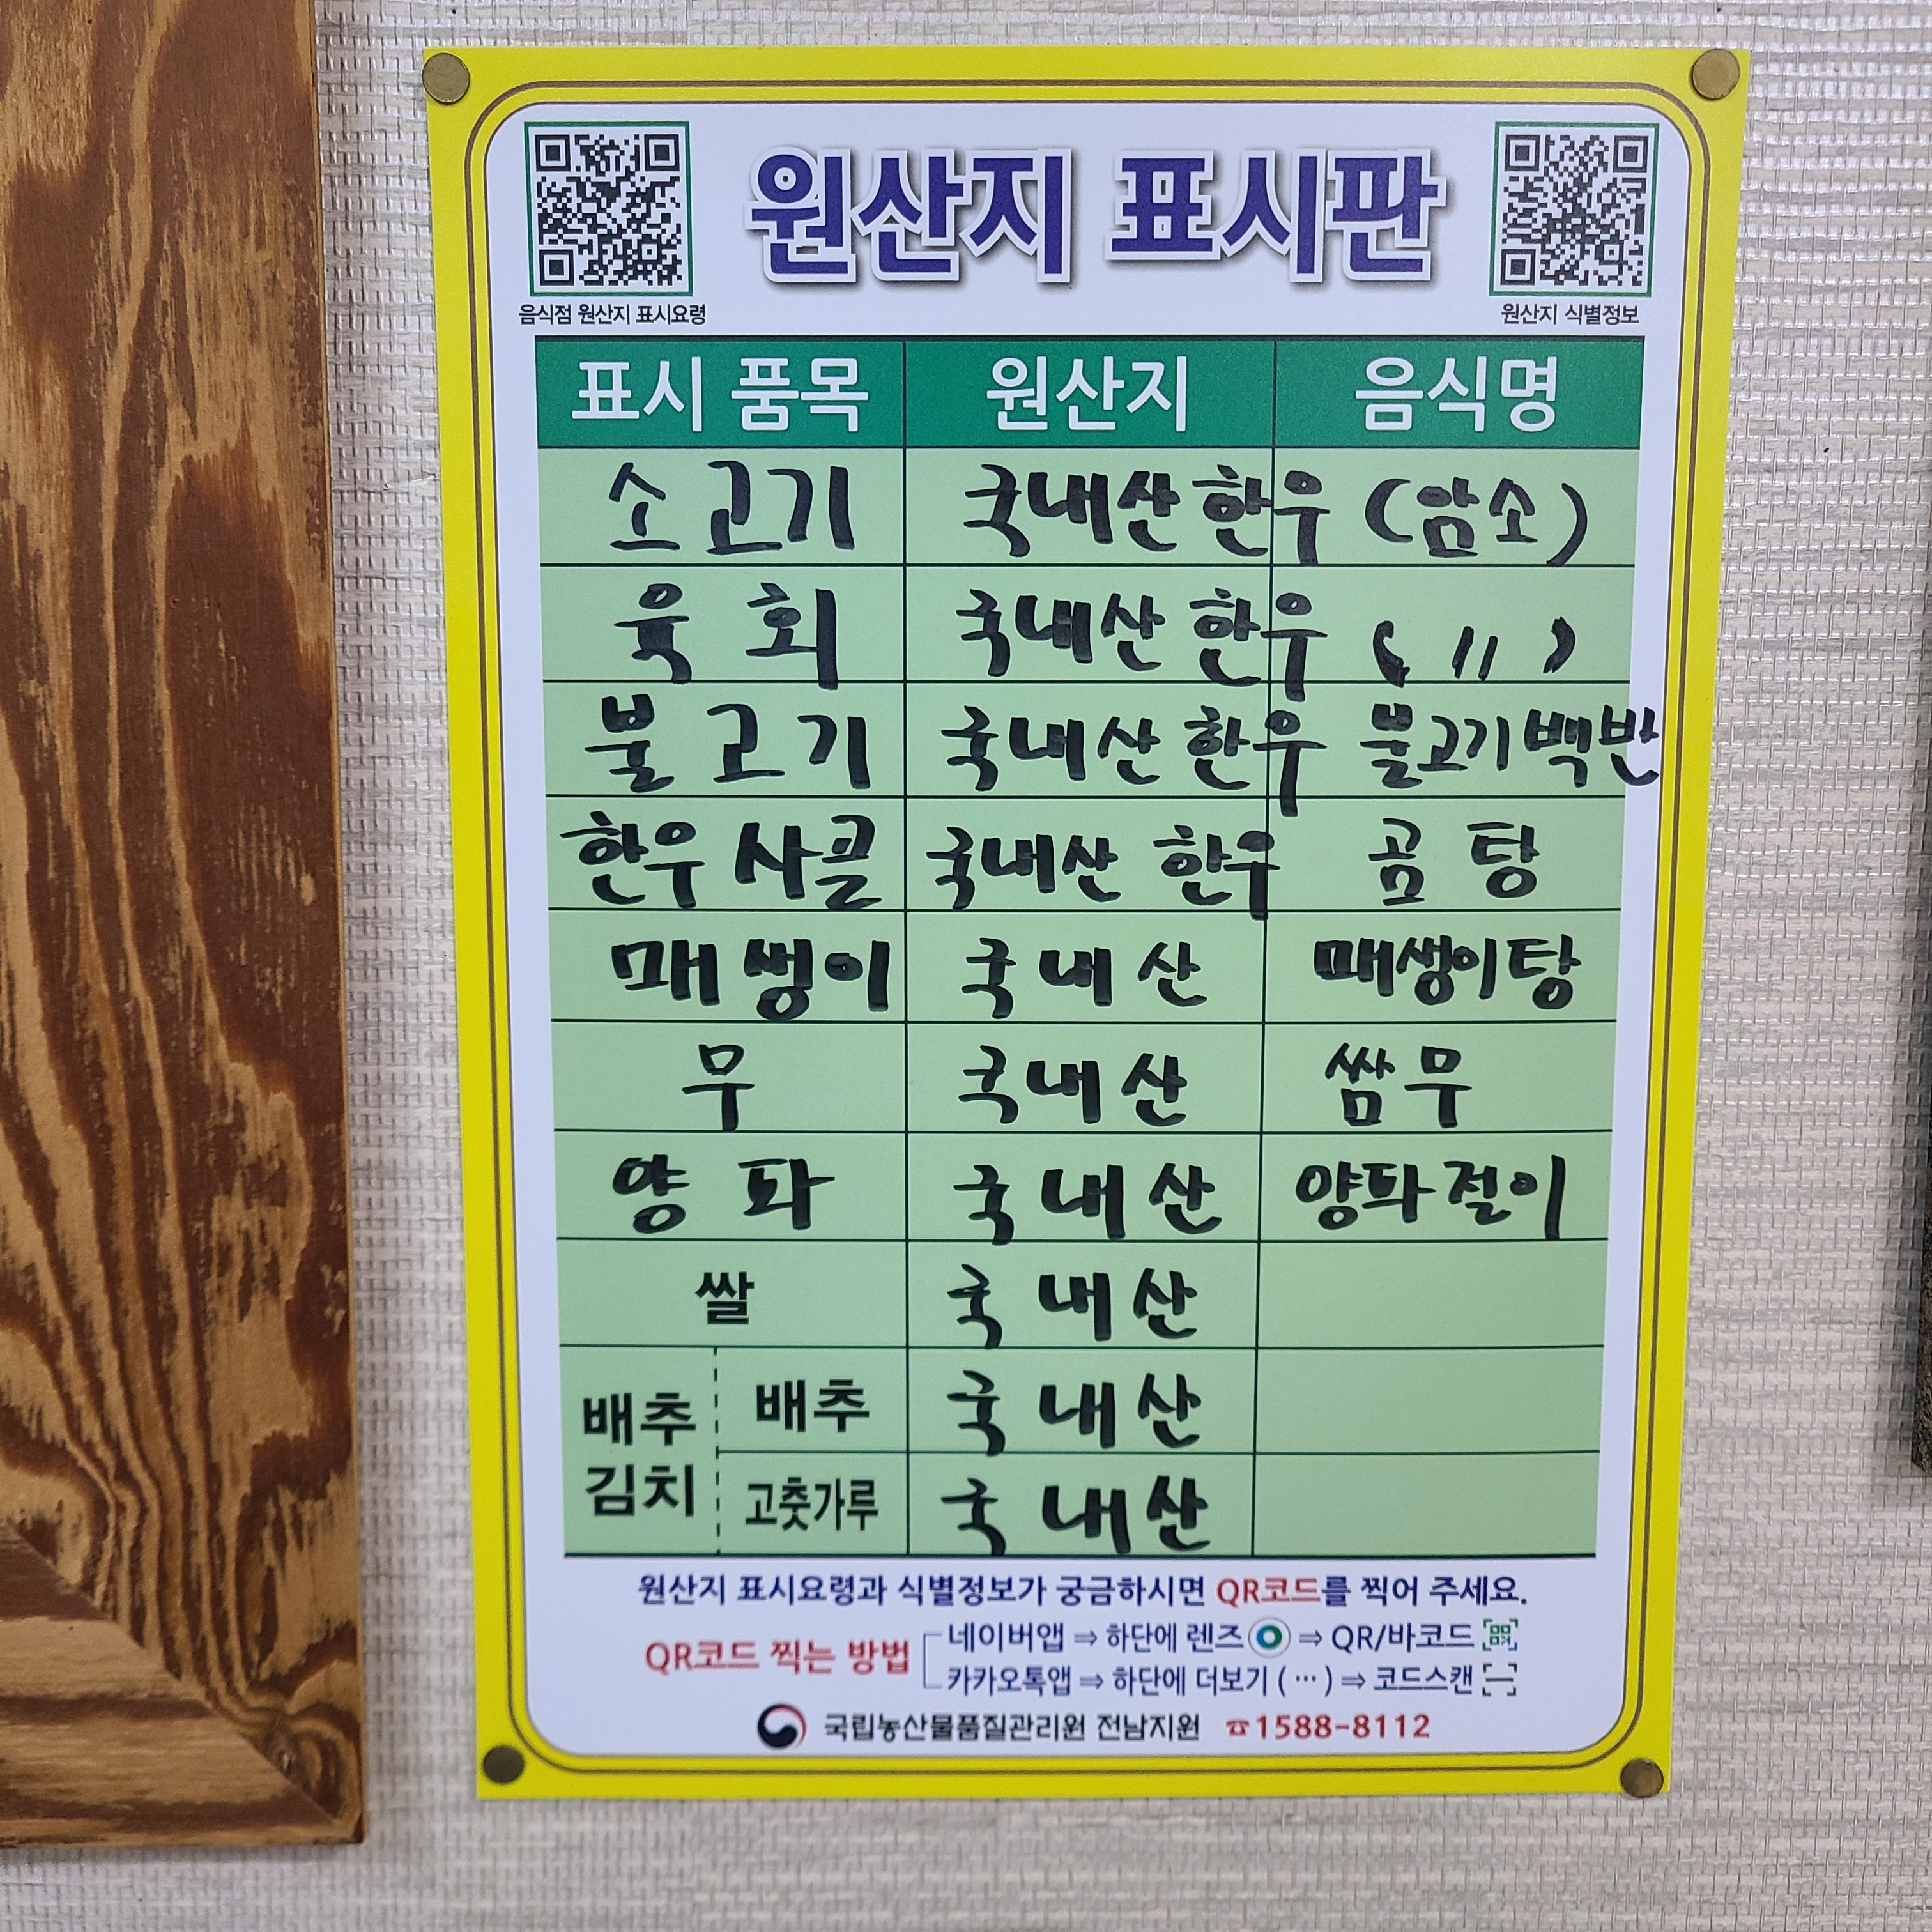 원산지 표시판
음식점 원산지 표시요령
원산지 식별정보
표시 품목 원산지 음식명
소고기 국내산 한우 (암소)
육회 국내산 한우 ( 〃 )
불고기 국내산 한우 불고기백반
한우 사골 국내산 한우 곰탕
매생이 국내산 매생이탕
무 국내산 쌈무
양파 국내산 양파절이
쌀 국내산
배추 김치 배추 국내산
고춧가루 국내산
원산지 표시요령과 식별정보가 궁금하시면 QR코드를 찍어 주세요.
QR코드 찍는 방법
네이버앱 ⇒ 하단에 렌즈 ⇒ QR/바코드
카카오톡앱 ⇒ 하단에 더보기 ( ··· ) ⇒ 코드스캔
국립농산물품질관리원 전남지원 ☎1588-8112